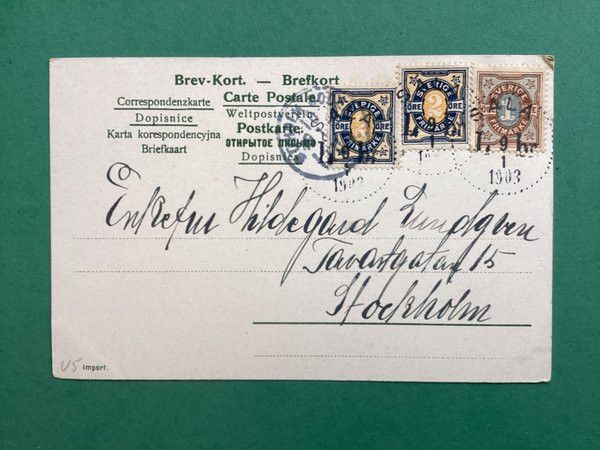 Brev-Kort. — Brefkort
Correspondenzkarte Carte Postale
Dopisnice Weltpostverein
Karta korespondencyjna Postkarte:
Briefkaart ОТКРЫТОЕ ПИСЬМО
Dopisnica
SVERIGE
2
ÖRE ÖRE
FRIMÄRKE
SVERIGE
2
ÖRE ÖRE
FRIMÄRKE
SVERIGE
1
ÖRE ÖRE
FRIMÄRKE
1903
1903
Enkefru Hildegard Lundgren
Tavastgatan 15
Stockholm
U5 Import.